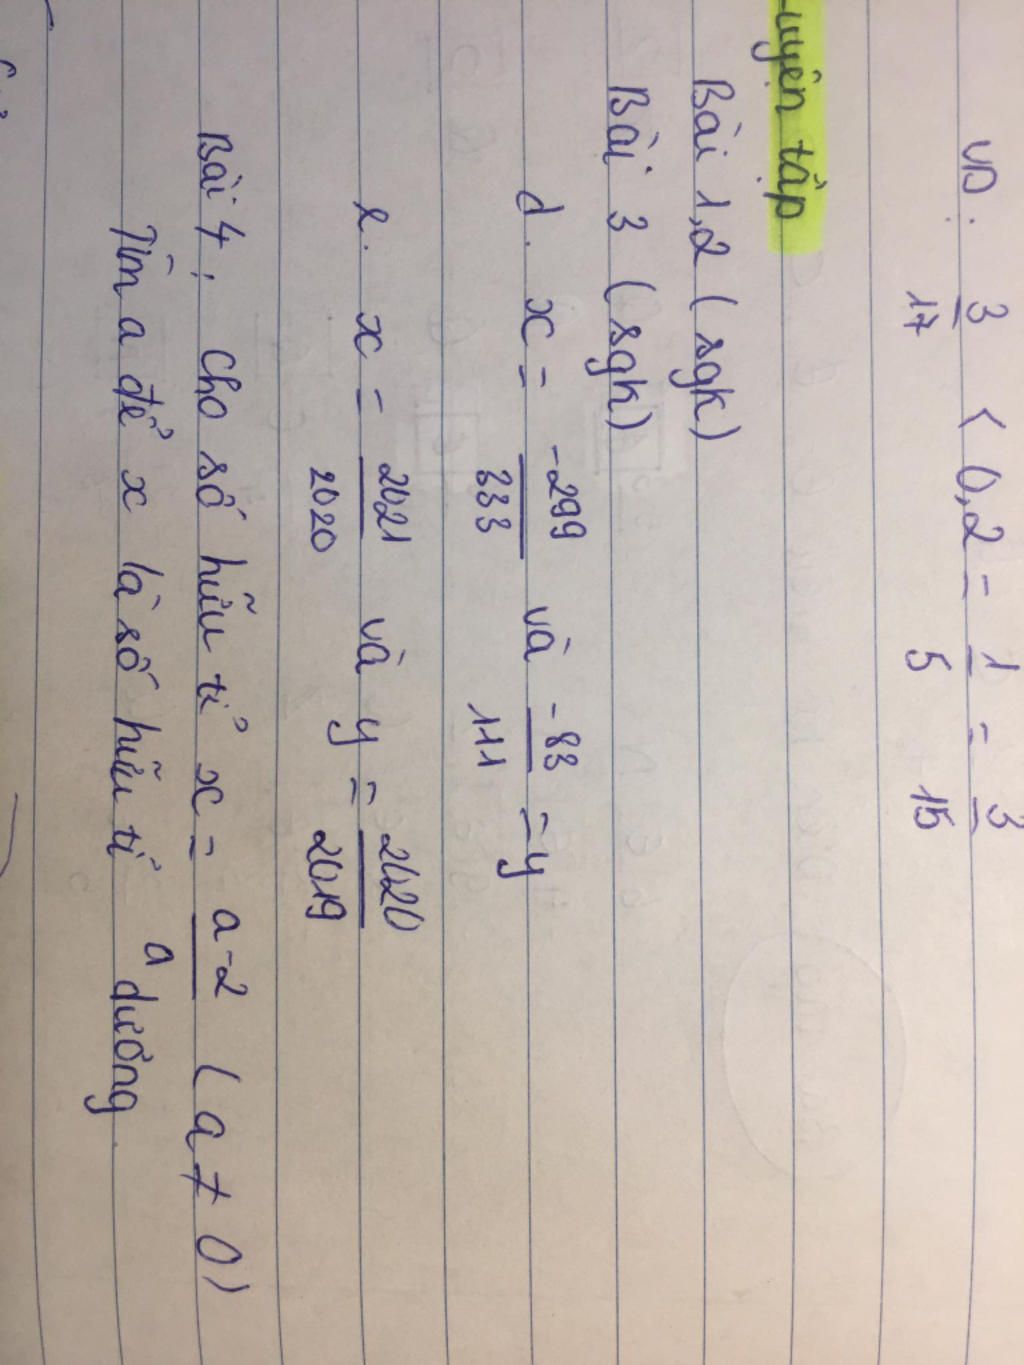 VD: 3/17 < 0,2 = 1/5 = 3/15
uyện tập
Bài 1,2 (sgk)
Bài 3 (sgk)
d. x = -299/333 và -83/111 = y
e. x = 2021/2020 và y = 2020/2019
Bài 4: Cho số hữu tỉ x = a-2/a (a ≠ 0)
Tìm a để x là số hữu tỉ dương.